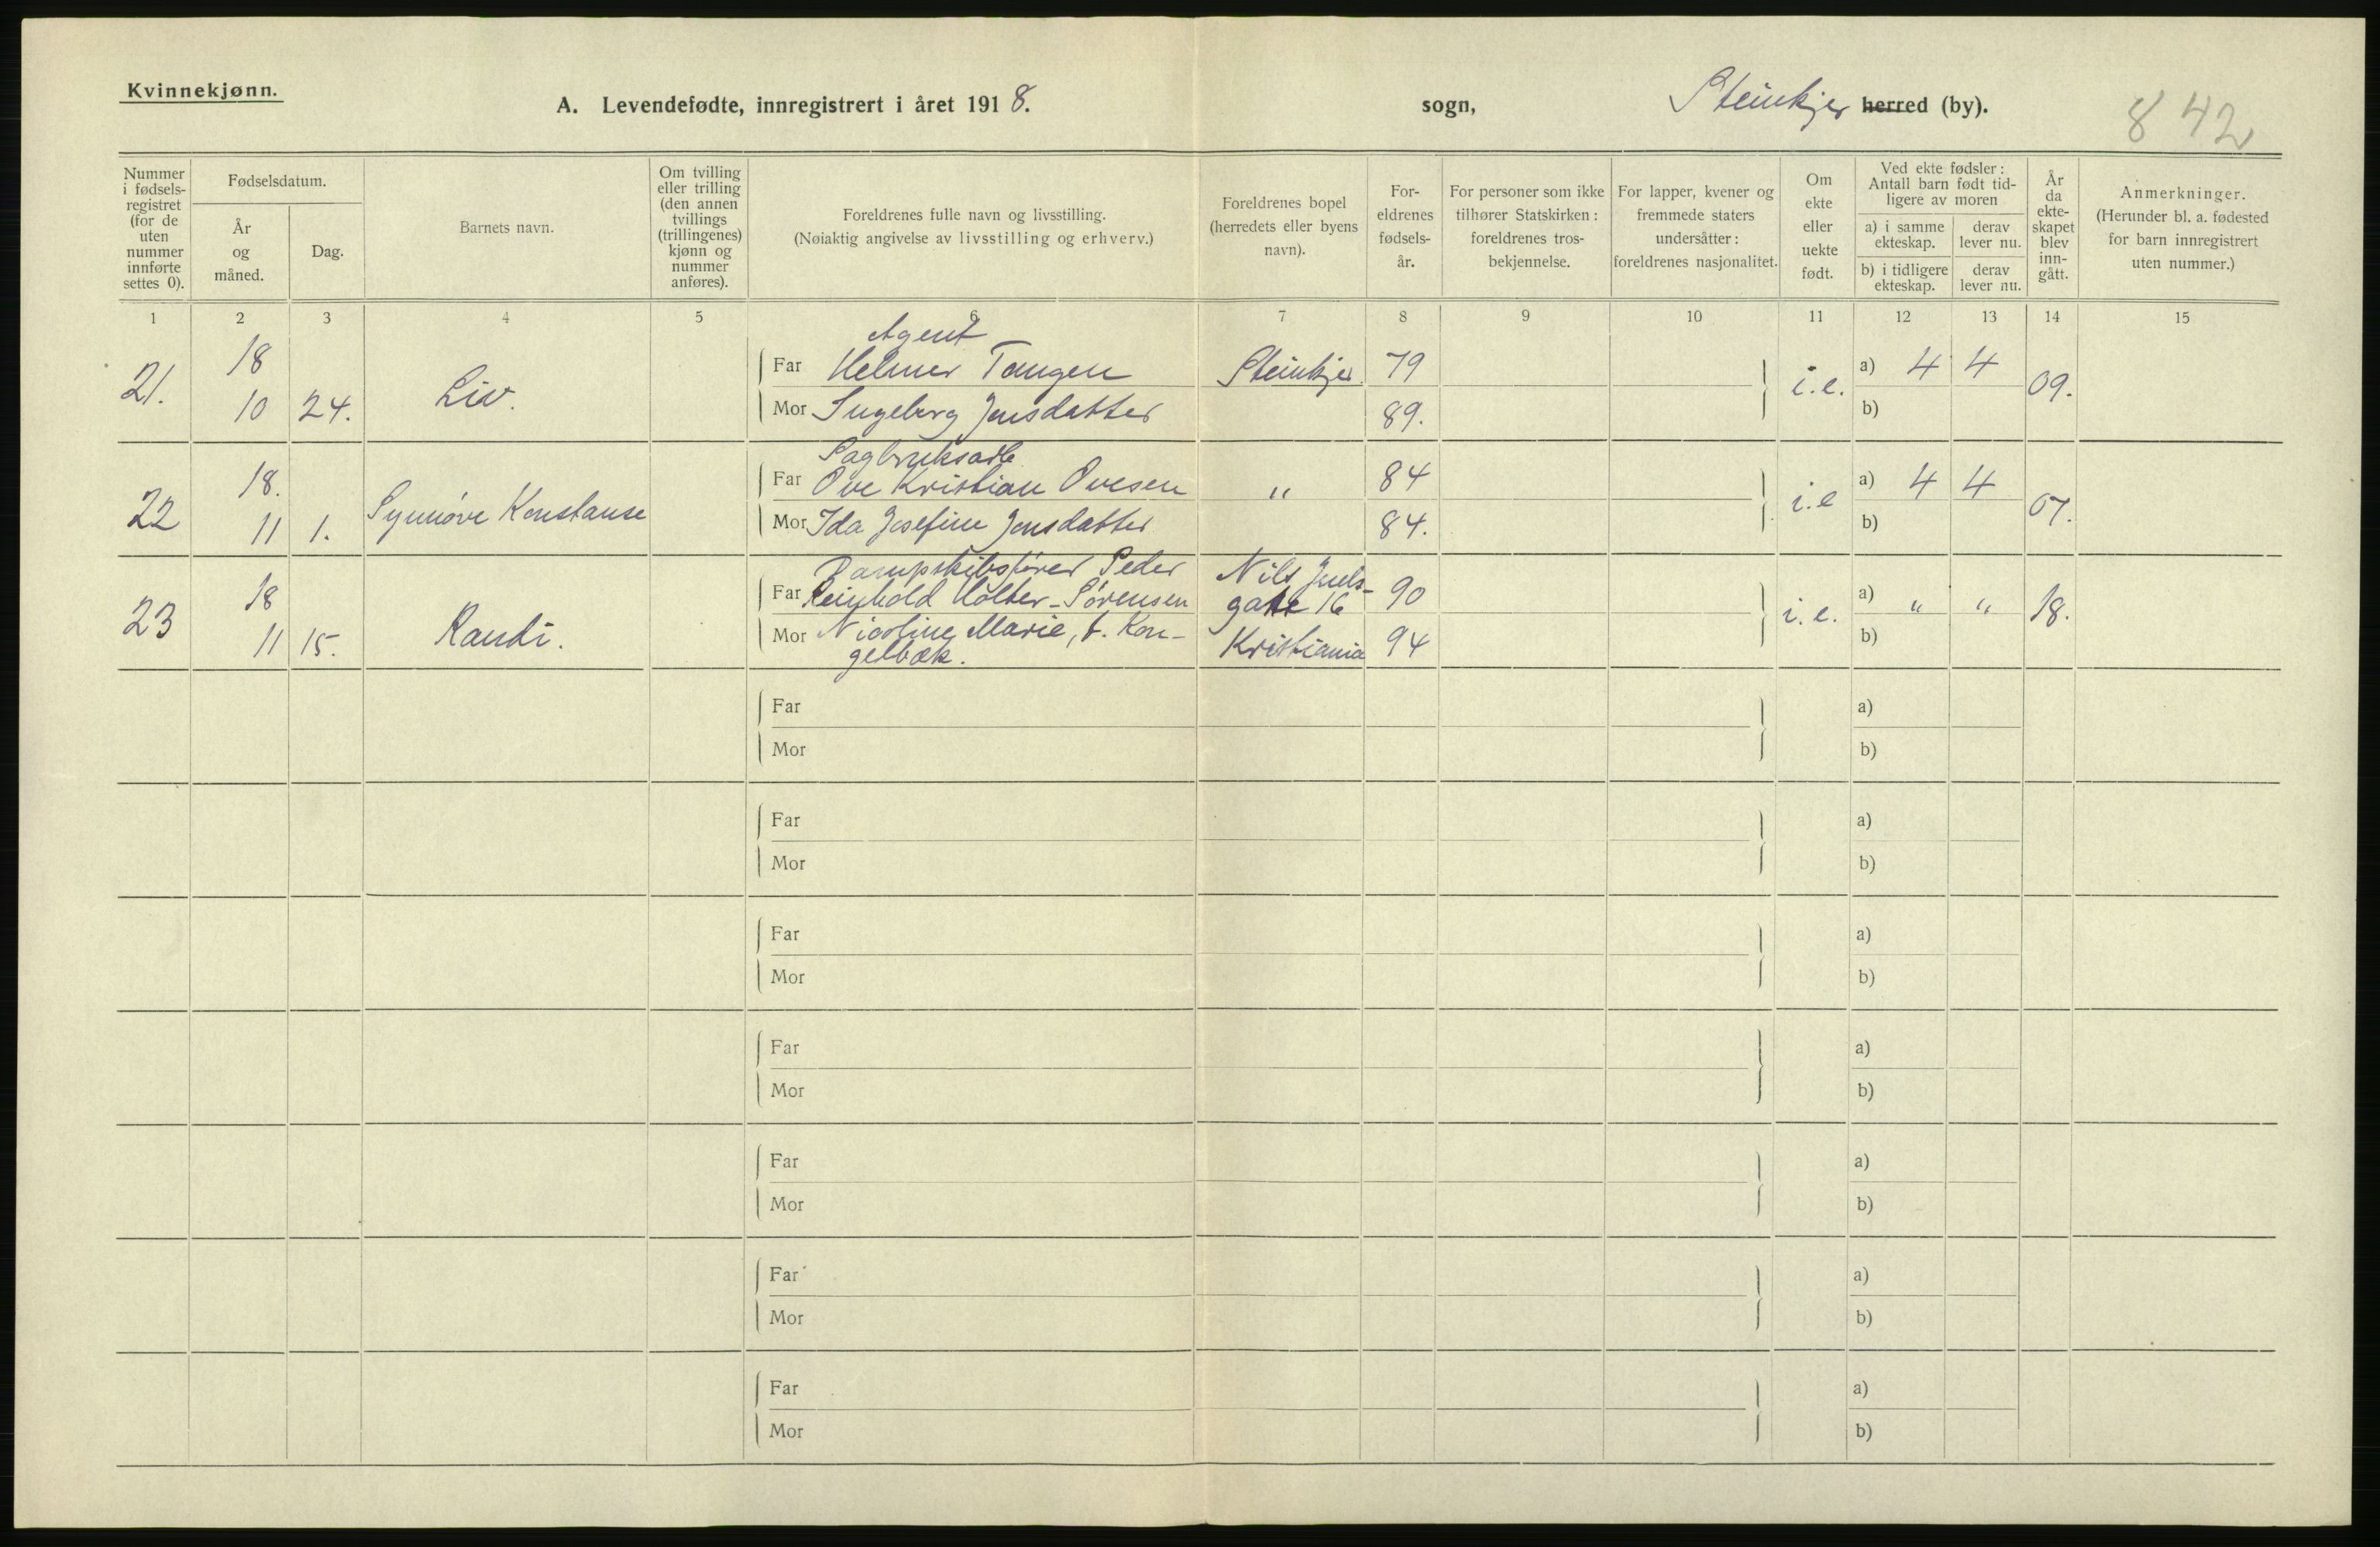 Kvinnekjønn.
A. Levendefødte, innregistrert i året 1918. sogn, Steinkjer herred (by).
842
Nummer i fødsels-registret (for de uten nummer innførte settes 0).
Fødselsdatum.
År og måned.
Dag.
Barnets navn.
Om tvilling eller trilling (den annen tvillings (trillingenes) kjønn og nummer anføres).
Foreldrenes fulle navn og livsstilling.
(Nøiaktig angivelse av livsstilling og erhverv.)
Foreldrenes bopel (herredets eller byens navn).
For-eldrenes fødsels-år.
For personer som ikke tilhører Statskirken: foreldrenes tros-bekjennelse.
For lapper, kvener og fremmede staters undersåtter: foreldrenes nasjonalitet.
Om ekte eller uekte født.
Ved ekte fødsler: Antall barn født tid-ligere av moren
a) i samme ekteskap.
derav lever nu.
b) i tidligere ekteskap.
derav lever nu.
År da ekte-skapet blev inn-gått.
Anmerkninger.
(Herunder bl. a. fødested for barn innregistrert uten nummer.)
1 2 3 4 5 6 7 8 9 10 11 12 13 14 15
Agent
21. 18 Far Helmer Tangen Steinkjer 79 a) 4 4
10 24. Liv. Mor Ingeborg Jensdatter 89. i.e. b) 09.
Sagbruksarb.
22 18. Far Ove Kristian Ovesen " 84 a) 4 4
11 1. Synnøve Konstanse Mor Ida Josefine Jensdatter 84. i.e b) 07.
Dampskibsfører Peder Nils Juels-
23 18 Far Reinhold Holter-Sørensen gate 16 90 a) " " 18.
11 15. Randi. Mor Nicoline Marie, f. Kon- Kristiania 94 i.e. b)
gelbæk.
Far a)
Mor b)
Far a)
Mor b)
Far a)
Mor b)
Far a)
Mor b)
Far a)
Mor b)
Far a)
Mor b)
Far a)
Mor b)